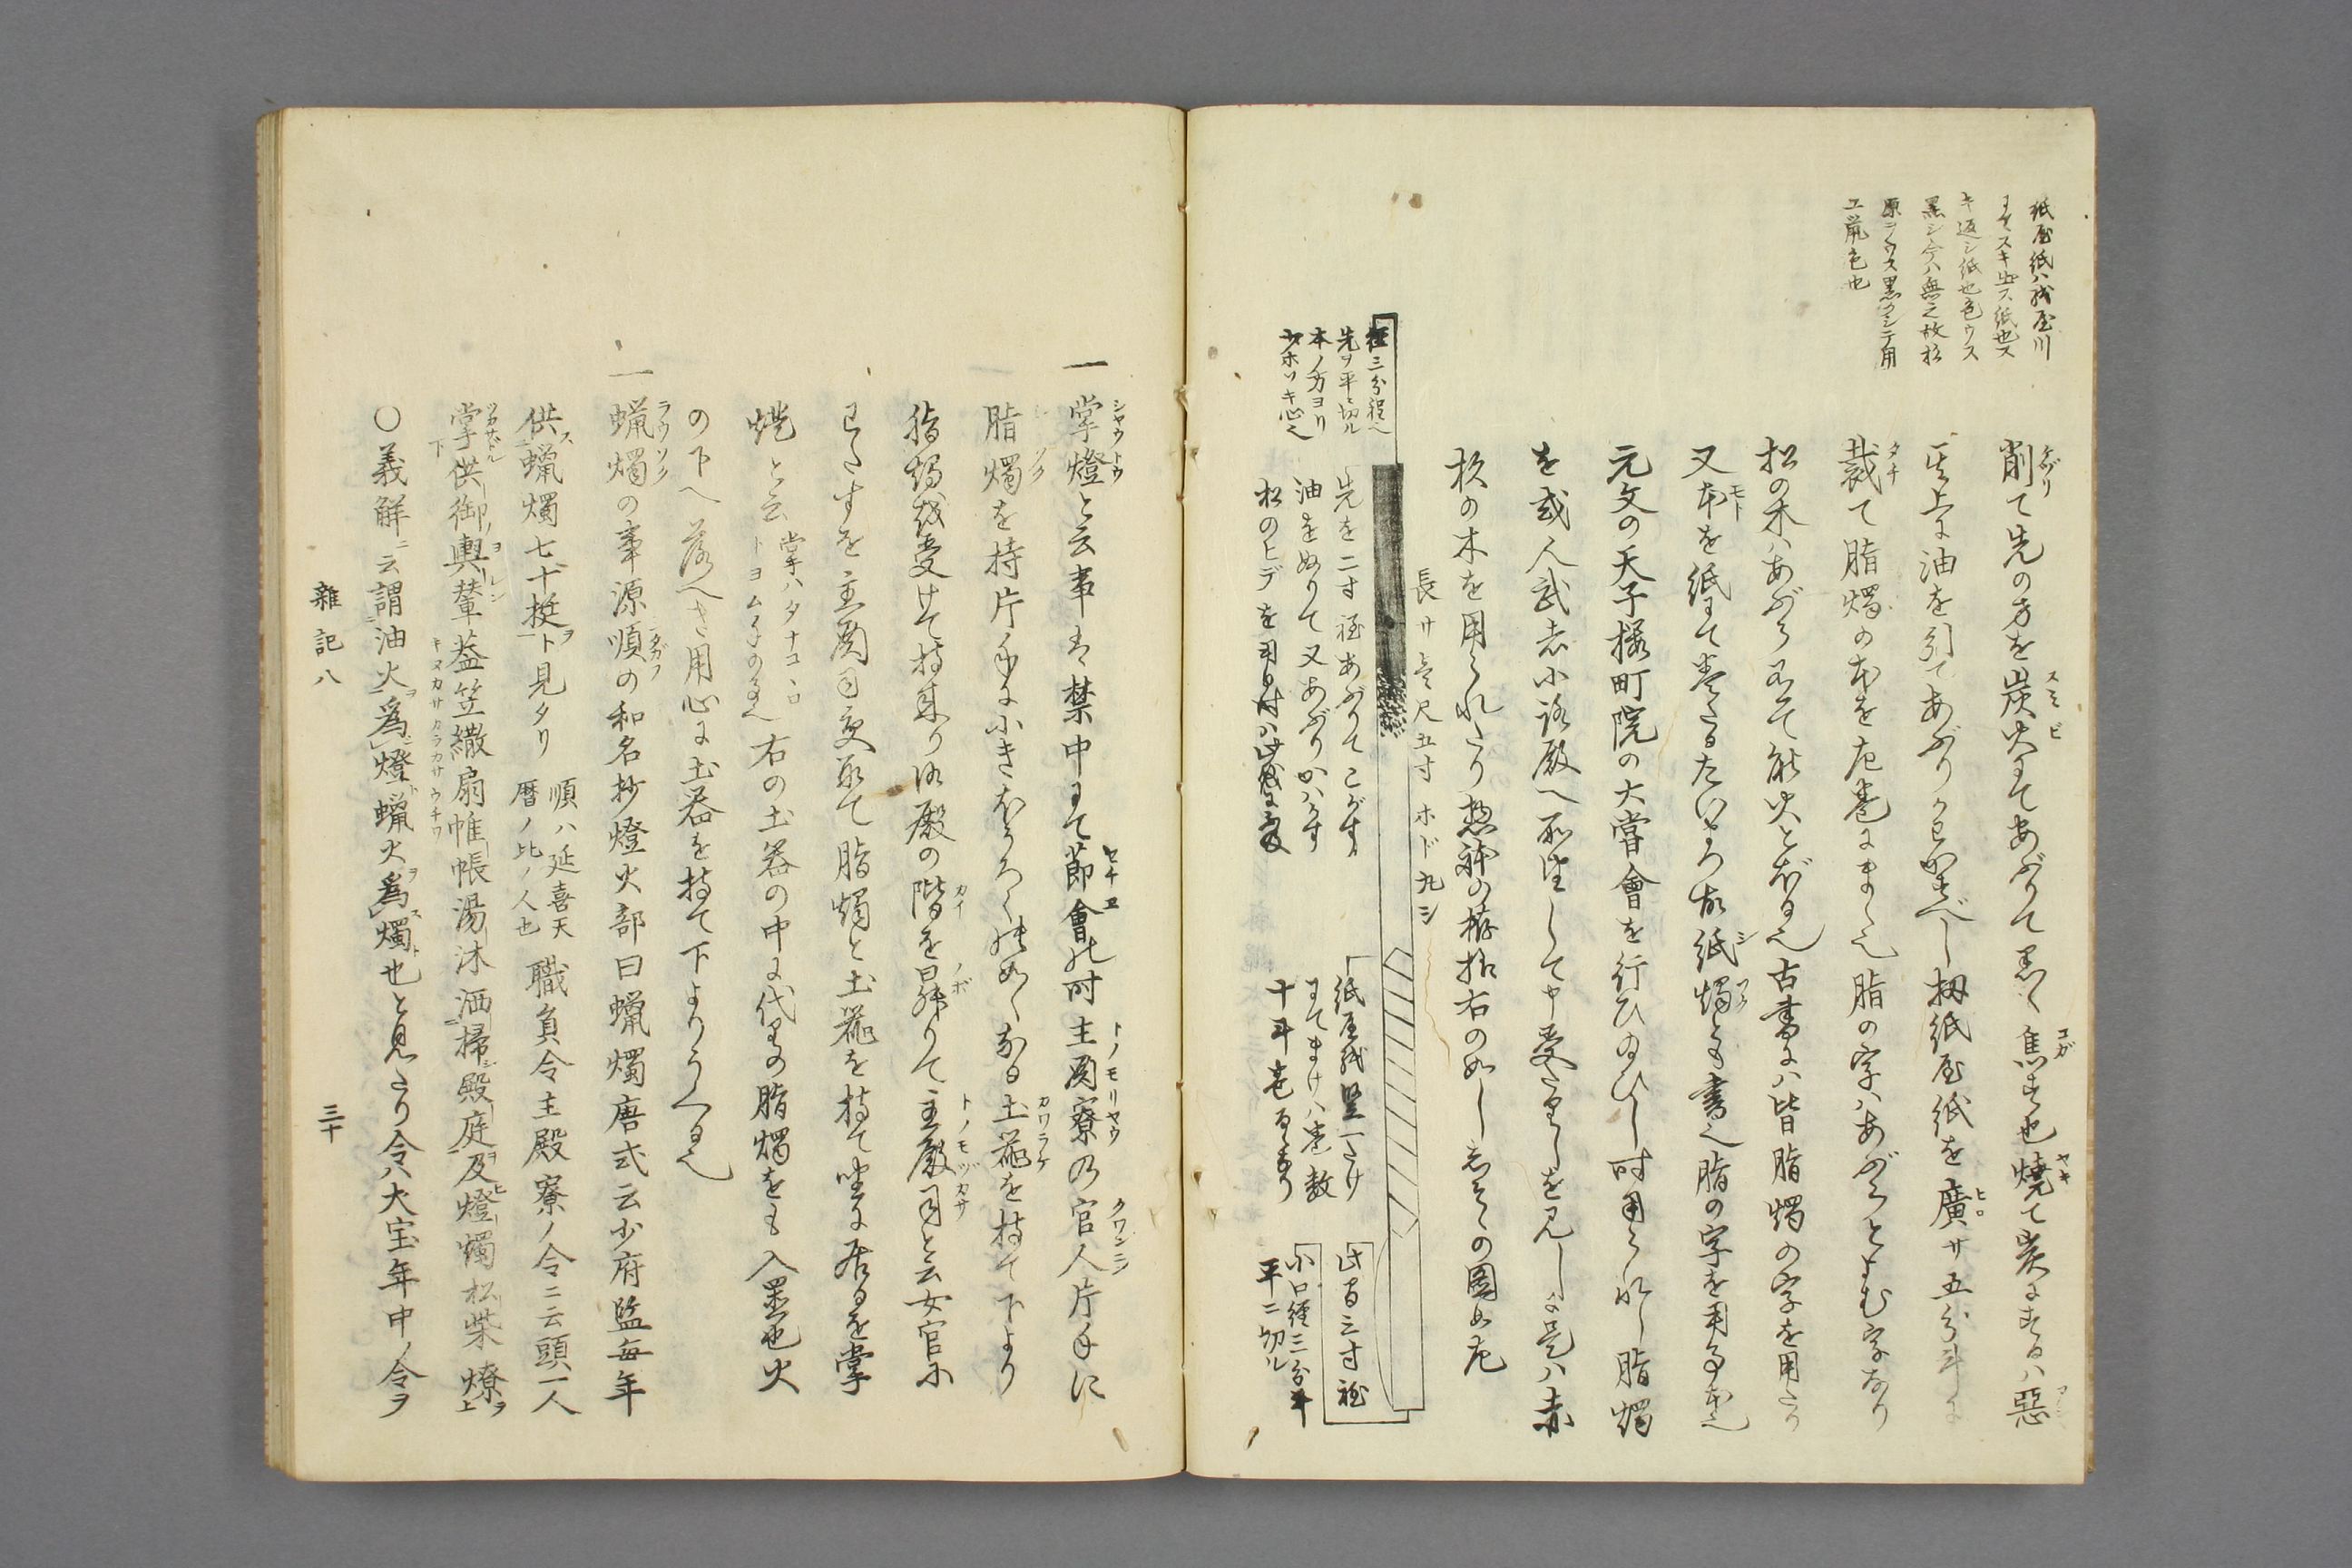 紙屋紙ハ紙屋川
ニテスキ出ス紙也ス
キ返シ紙也色ウス
黒シ今ハ無之故杉
原ヲウス黒クシテ用
ユ鼠色也
削て先の方を炭火にてあぶりて黒く焦す也燒て炭にするハ惡
其上に油を引てあぶりかわかすべし扨紙屋紙を廣サ五分斗に
裁て脂燭の本を左巻にまく也脂の字ハあぶらとよむ字なり
松の木ハあぶら有て能火とぼる也古書にハ皆脂燭の字を用たり
又本を紙にて巻たるたいまつ故紙燭とも書也脂の字を用る本也
元文の天子櫻町院の大嘗會を行ひ給ひし時用られし脂燭
を或人武者小路殿へ所望して申受たりしを見しに是ハ赤
松の木を用られたり惣躰の格好右の如しその圖如左
長サ壱尺五寸ホド丸シ
径三分程也
先ヲ平ニ切ル
本ノ方ヨリ
少ホソキ心也
先を二寸程あぶりてこがす
油をぬりて又あぶりかハかす
松のヒデを用る時ハ
紙屋紙竪一たけ
にてまけハ巻数
十斗巻るゝなり
此間三寸程
小口径三分半
平ニ切ル
一 掌燈と云事は禁中にて節會の時主殿寮の官人片手に
脂燭を持片手に小き水うろくの如くなる土器を持て下より
脂燭を受けて持來り御殿の階を昇りて主殿司と云女官に
わたすを主殿司受取て脂燭と土器を持て座に居るを掌
燈と云 掌ハタナコヽロ
トヨム手の事也 右の土器の中に代りの脂燭をも入置也火
の下へ落へき用心に土器を持て下よりうくる也
一 蝋燭の事源順の和名抄燈火部曰蝋燭唐式云少府監毎年
供蝋燭七十挺ト見タリ 順ハ延喜天
暦ノ比ノ人也 職員令主殿寮ノ令ニ云頭一人
掌供御輿輦蓋笠繖扇帷帳湯沐洒掃殿庭及燈燭松柴燎
〇義解ニ云謂油火爲燈蝋火爲燭也と見たり令ハ大宝年中ノ令ヲ
雜記八
三十